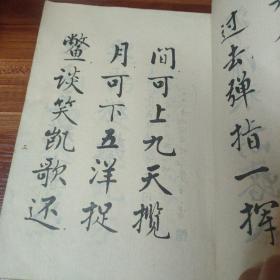 过去弹指一挥
间可上九天揽
月可下五洋捉
鳖谈笑凯歌还
三